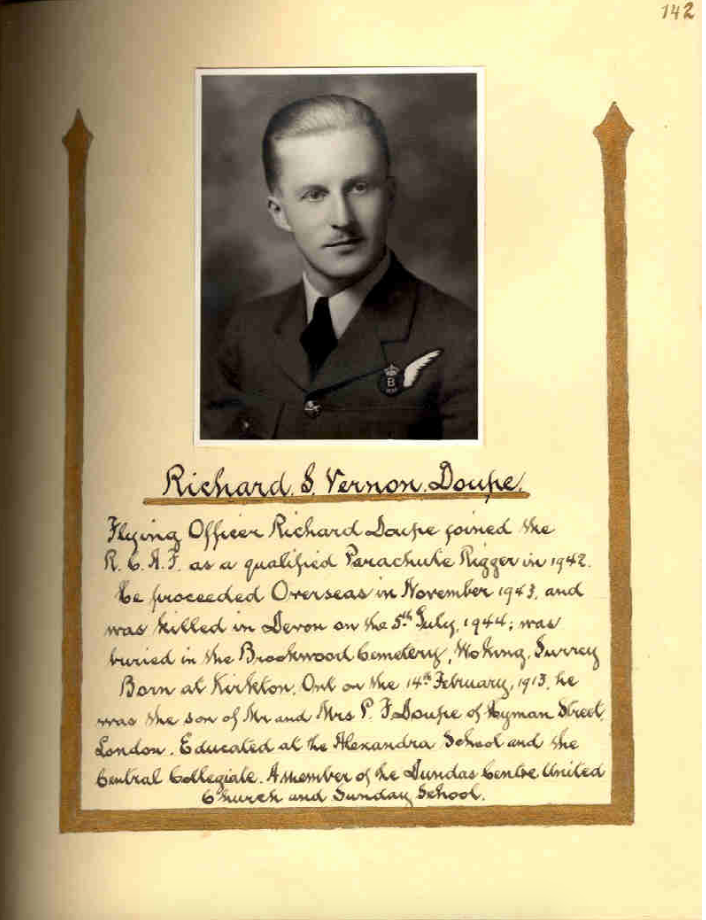 142
B
Richard. S. Vernon. Doupe.
Flying Officer Richard Doupe joined the
R.C.A.F. as a qualified Parachute Rigger in 1942.
He proceeded Overseas in November 1943, and
was killed in Devon on the 5th July, 1944; was
buried in the Brookwood Cemetery, Woking, Surrey
Born at Kirkton, Ont on the 14th February, 1913, he
was the son of Mr and Mrs P. F. Doupe of Hyman Street,
London. Educated at the Alexandra School and the
Central Collegiate. A member of the Dundas Centre United
Church and Sunday School.